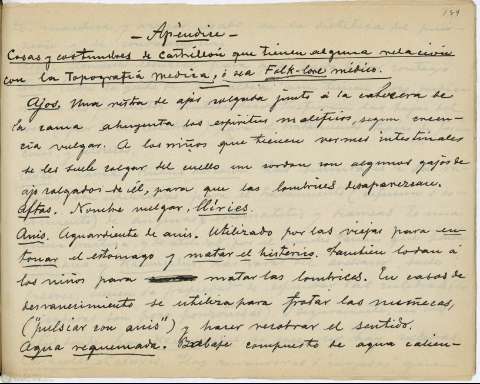 134
— Apéndice —
Cosas y costumbres de Castrillón que tienen alguna relación
con la Topografía médica, ó sea Folk-lore médico.
Ajos. Una ristra de ajos colgada junto á la cabecera de
la cama ahuyenta los espíritus maléficos, segun creen-
cia vulgar. A los niños que tienen vermes intestinales
se les suele colgar del cuello un cordon con algunos gajos de
ajo colgados de él, para que las lombrices desaparezcan.
Aftas. Nombre vulgar, lliries.
Anis. Aguardiente de anis. Utilizado por las viejas para en-
tonar el estómago y matar el histerico. Tambien lo dan á
los niños para matar las lombrices. En casos de
desvanecimiento se utiliza para frotar las muñecas,
("pulsiar con anis") y hacer recobrar el sentido.
Agua requemada. Brebaje compuesto de agua calien-